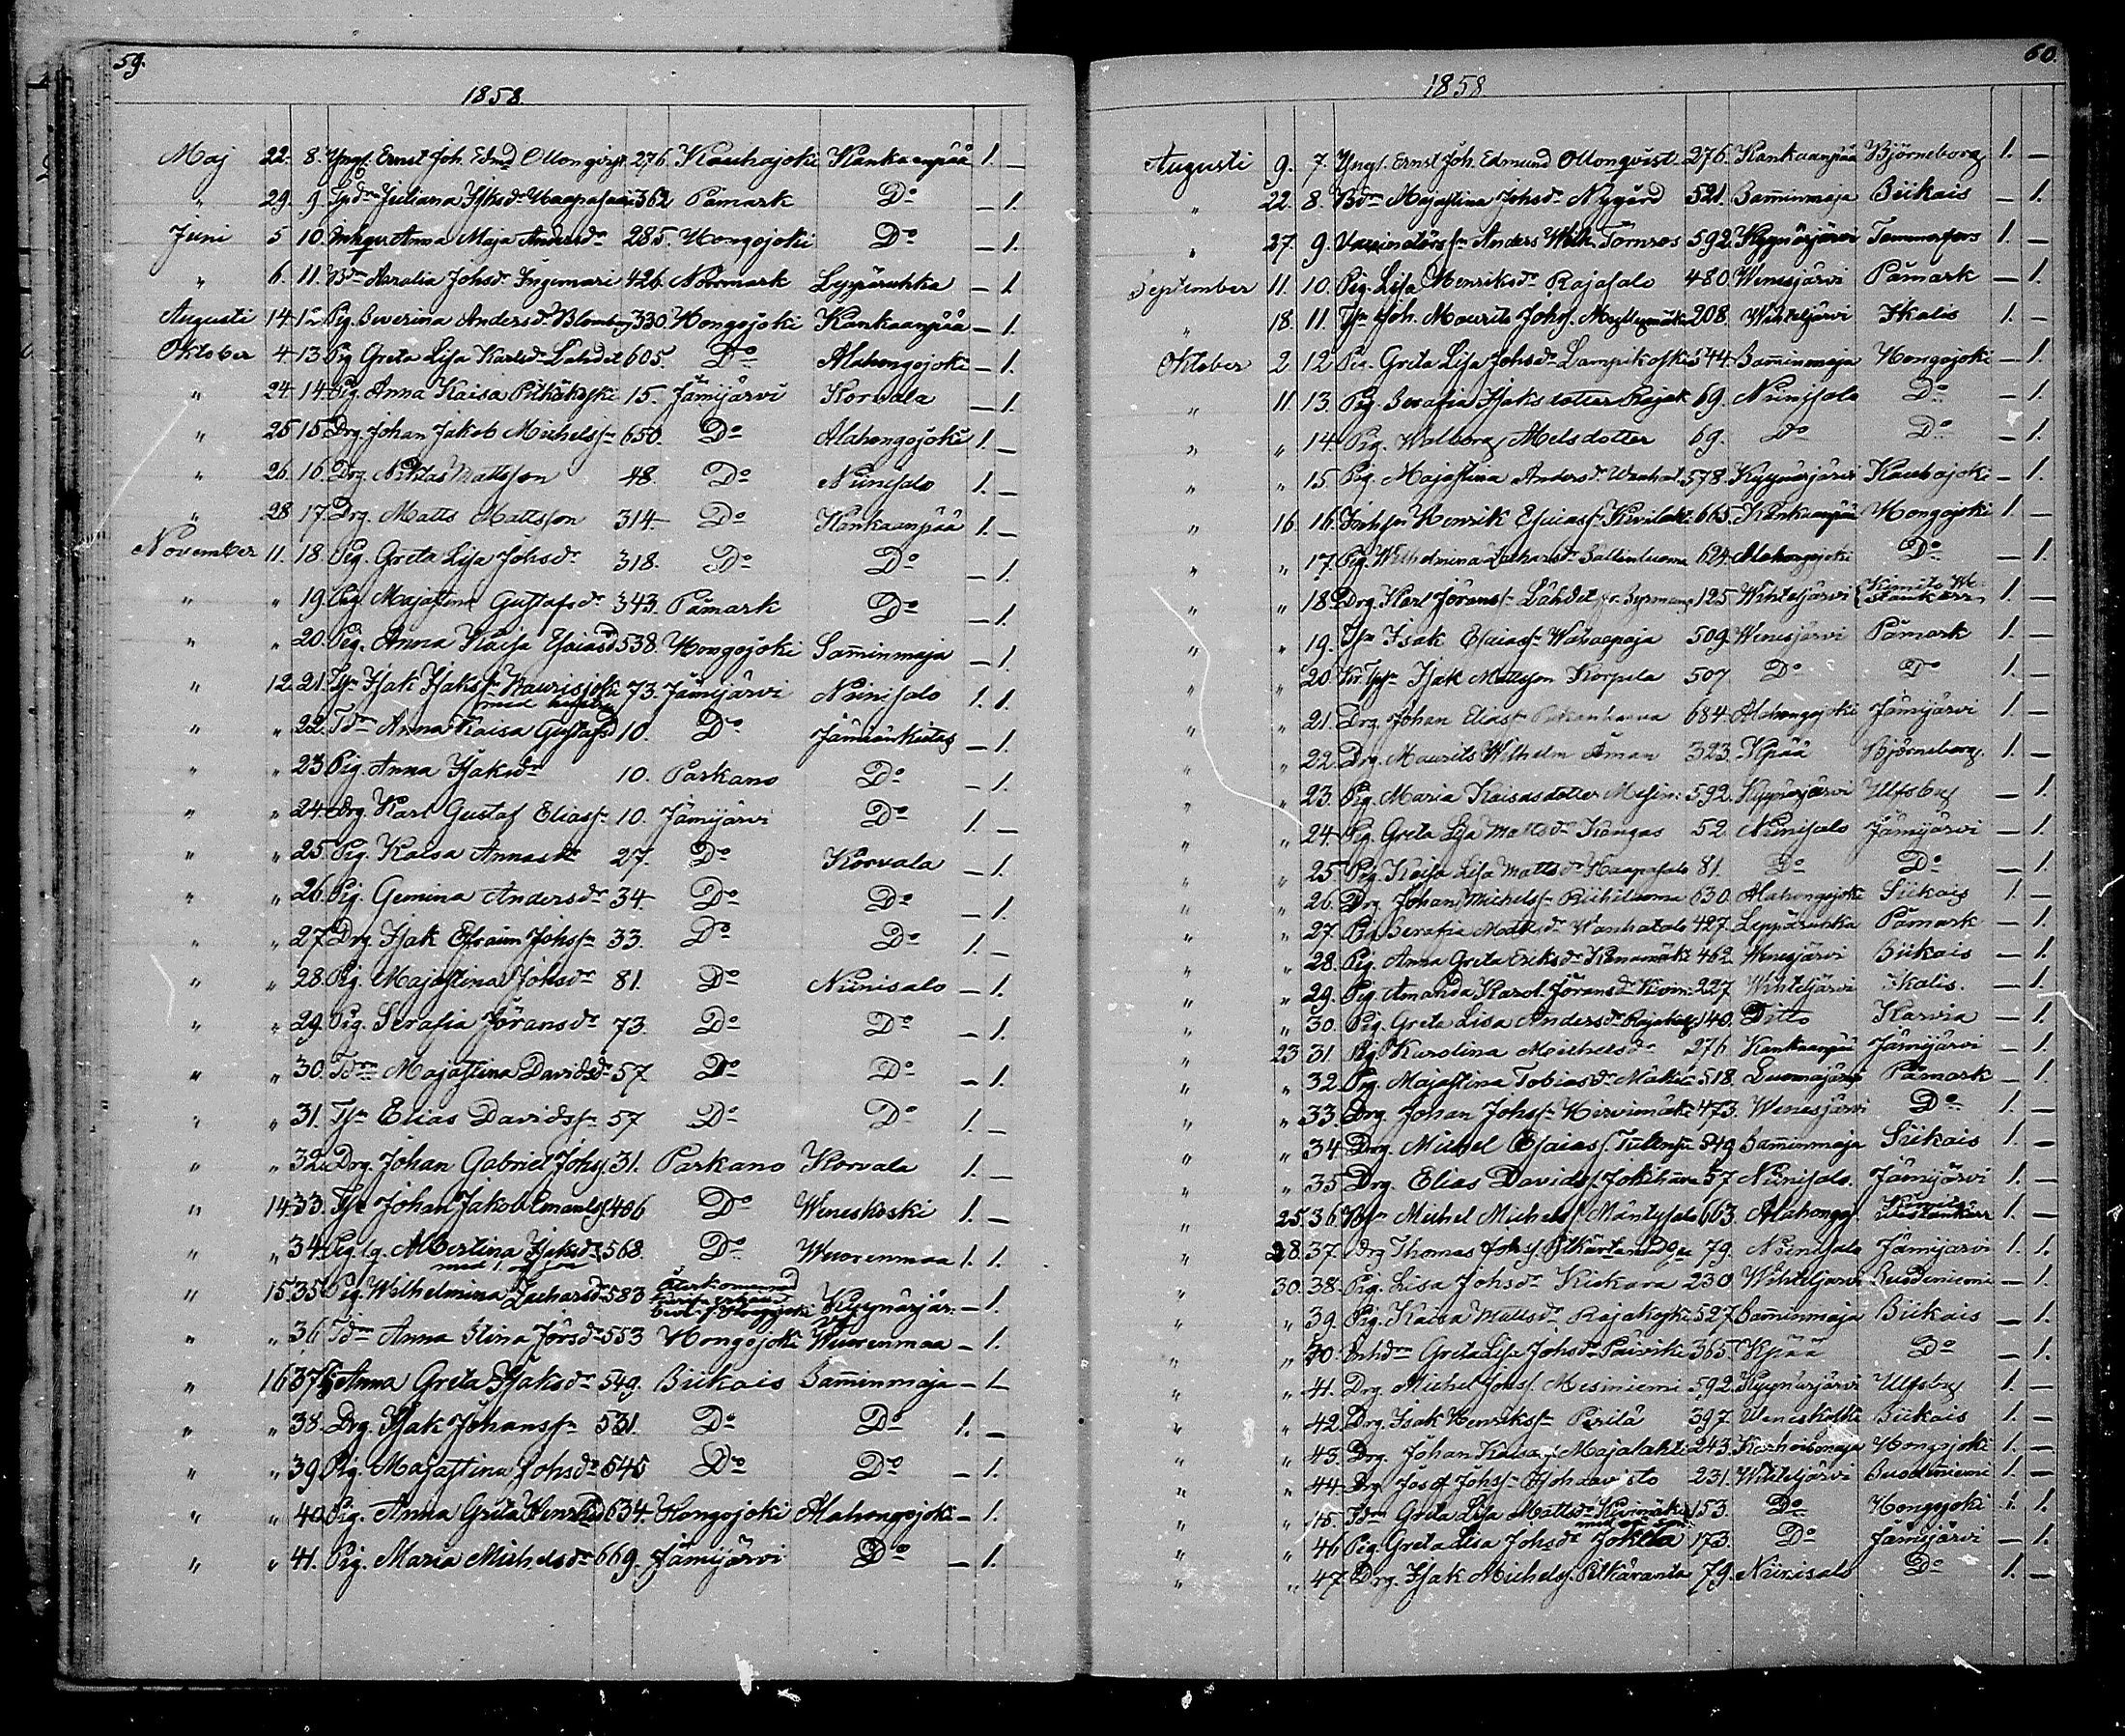 59.
1858.
Maj 22. 8. Yngl. Ernst Joh. Edmd Ollonqvist 276. Kauhajoki Kankaanpää 1. —
" 29. 9. Juliana Isaksdr Haapasaari 362 Påmark Do — 1.
Juni 5 10. Anna Maja Andersdr 285. Hongojoki Do — 1.
" 6. 11. Johsdr Ingemari 426. Norrmark Leppäruhka — 1
Augusti 14. 12 Pig. Severina Andersdr Blomberg 330. Hongojoki Kankaanpää — 1.
Oktober 4 13. Pig Greta Lisa Karlsdr Lahdet 605. Do Alahongojoki — 1.
" 24. 14. Pig. Anna Kaisa Pitkäkoski 15. Jämijärvi Korvala — 1.
" 25 15. Drg. Johan Jakob Michelsn 650. Do Alahongojoki 1. —
" 26. 16. Drg. Niklas Mattsson 48. Do Niinisalo 1. —
" 28 17. Drg. Matts Mattsson 314 Do Kankaanpää 1. —
November 11. 18. Pig. Greta Lisa Johsdr 318. Do Do — 1.
" " 19. Pig. Majastina Gustafsdr 343. Påmark Do — 1.
" " 20. Pig. Anna Kaisa Esaiasd 538. Hongojoki Samminmaja — 1.
" 12. 21. Isak Isakss 73. Jämijärvi Niinisalo 1. 1.
med hustru
" " 22. Tdr Anna Kaisa Gustafsd 10. Do Jämiänkeidas — 1.
" " 23 Pig. Anna Isaksdr 10. Parkano Do — 1.
" " 24. Drg. Karl Gustaf Eliass 10. Jämijärvi Do 1. —
" " 25. Pig. Kaisa Annasdr 27. Do Korvala — 1.
" " 26. Pig. Gemina Andersdr 34 Do Do — 1.
" " 27. Drg. Isak Efraim Johssn 33. Do Do 1. —
" " 28. Pig. Majastina Johsdr 81. Do Niinisalo — 1.
" " 29. Pig. Serafia Jöransdr 73. Do Do — 1.
" " 30. Tdr Majastina Davidsdr 57 Do Do — 1.
" " 31. Tsn Elias Davidssn 57 Do Do 1. —
" " 32. Drg. Johan Gabriel Johss. 31. Parkano Korvala 1. —
" 14. 33. Johan Jakob Emanls. 406 Do Weneskoski 1. —
" " 34. Pig. Albertina Isaksdr 568. Do Wuorenmaa 1. 1.
" 15. 35. Pig. Wilhelmina Zacharsdr 583 Hongojoki Kyynärjär. — 1.
" " 36 Tdr Anna Stina Jörsdr 553 Hongojoki Wuorenmaa — 1.
" 16 37 Anna Greta Isaksdr 549. Siikais Samminmaja — 1.
" " 38. Drg. Isak Johanssn 531. Do Do 1. —
" " 39. Pig. Majastina Johsdr 545 Do Do — 1.
" " 40. Pig. Anna Greta Henrikd 634. Hongojoki Alahongojoki — 1.
" " 41. Pig. Maria Michelsdr 669. Jämijärvi Do — 1.
60.
1858
Augusti 9. 7. Yngl. Ernst Joh. Edmund Ollonqvist 276. Kankaanpää Björneborg 1. —
" 22. 8. Majastina Johsdr Nygård 521. Samminmaja Siikais — 1.
" 27. 9. Anders Wilh. Törnros 592. Kyynärjärvi Tammerfors 1. —
September 11. 10. Pig. Lisa Henriksdr Rajasalo 480. Wenesjärvi Påmark — 1.
" 18. 11. Tsn Joh. Maurits Johss. Myllymäki 208. Wihteljärvi Ikalis 1. —
Oktober 2 12 Pig. Greta Lisa Johsdr Lampikoski 544. Samminmaja Hongojoki — 1.
" 11. 13. Pig. Serafia Isaks dotter Rajak 69. Niinisalo Do — 1.
" " 14. Pig. Walborg dotter 69. Do Do — 1.
" " 15 Pig. Majastina Andersdr 578. Kyynärjärvi Kauhajoki — 1.
" 16 16. Henrik Esaiass. 665. Kankaanpää Hongojoki 1. —
" " 17. Pig. Wilhelmina Zacharsdr Sallinluoma 624. Alahongojoki Do — 1.
" " 18. Drg. Karl Jöranss. Lähdet 125. Wihteljärvi 1. —
" " 19. Tsn Isak Esaiass. 509. Wenesjärvi Påmark 1. —
" " 20 Isak Mattsson Korpela 507 Do Do 1. —
" " 21. Drg. Johan Eliass. 684. Alahongojoki Jämijärvi 1. —
" " 22. Drg. Maurits Wilhelm Åman 323. Kpää Björneborg 1. —
" " 23. Pig. Maria Kaisasdotter Mesin: 592. Kyynärjärvi Ulfsby — 1.
" " 24. Pig. Greta Lisa Mattsdr Kangas 52. Niinisalo Jämijärvi — 1.
" " 25 Pig. Kaisa Lisa Mattsdr Haapasalo 81. Do Do — 1.
" " 26. Drg. Johan Michelss. Riihiluoma 630. Alahongojoki Siikais 1. —
" " 27. Pig Serafia Mattsdr Wanhatalo 427. Leppäruhka Påmark — 1.
" " 28. Pig. Anna Greta Eriksdr 462. Wenesjärvi Siikais — 1.
" " 29. Pig. Amanda Karol. Jöransdr 227. Wihteljärvi Ikalis. — 1.
" " 30. Pig. Greta Lisa Andersdr 140. Ditto Karvia — 1.
" 23 31. Pig Karolina Michelsdr 276 Kankaanpää Jämijärvi — 1.
" " 32. Pig. Majastina Tobiasdr 518. Luomajärvi Påmark — 1.
" " 33. Drg. Johan Johssn Hirvimäki 473. Wenesjärvi Do 1. —
" " 34 Drg. Michel Esaiass. 549 Samminmaja Siikais 1. —
" " 35 Drg. Elias Davidss. 57 Niinisalo. Jämijärvi 1. —
" 25. 36. Michel Michelss. Mäntysalo 663. Alahongoj. 1. —
" 28. 37. Drg Thomas Johss. Pitkäranta 79. Niinisalo Jämijärvi 1. 1.
" 30. 38. Pig. Lisa Johsdr Kiskara 230 Wihteljärvi Suodeniemi — 1.
" " 39. Pig. Kaisa Mattsdr Rajakoski 527 Samminmaja Siikais — 1.
" " 40. Greta Lisa Johsdr 365. Kpää Do — 1.
" " 41. Drg. Michel Johss. Mesiniemi 592. Kyynärjärvi Ulfsby 1. —
" " 42. Drg. Isak Henrikssn Perilä 397. Weneskoski Siikais 1. —
" " 43. Drg. Johan Kaisas. Majalahti 243. Hongojoki 1. —
" " 44. Drg. Josef Johssn 231. Wihteljärvi Suodeniemi 1. —
" " 45. Tdr Greta Lisa Mattsdr 153. Do Hongojoki 1. 1.
" " 46 Pig. Greta Lisa Johsdr Jokela 173. Do Jämijärvi — 1.
" " 47. Drg. Isak Michelss. Pitkäranta 79. Niinisalo Do 1. —